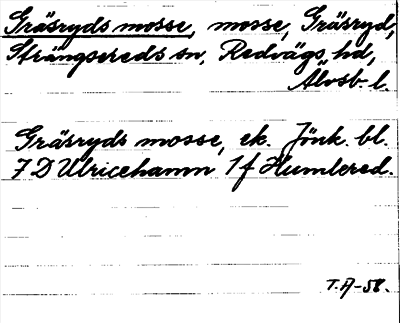 Gräsryds mosse, mosse, Gräsryd,
Strängsereds sn, Redvägs hd,
Älvsb. l.
Gräsryds mosse, ek. Jönk. bl.
7 D Ulricehamn 1 f Humlered.
T.A-58.